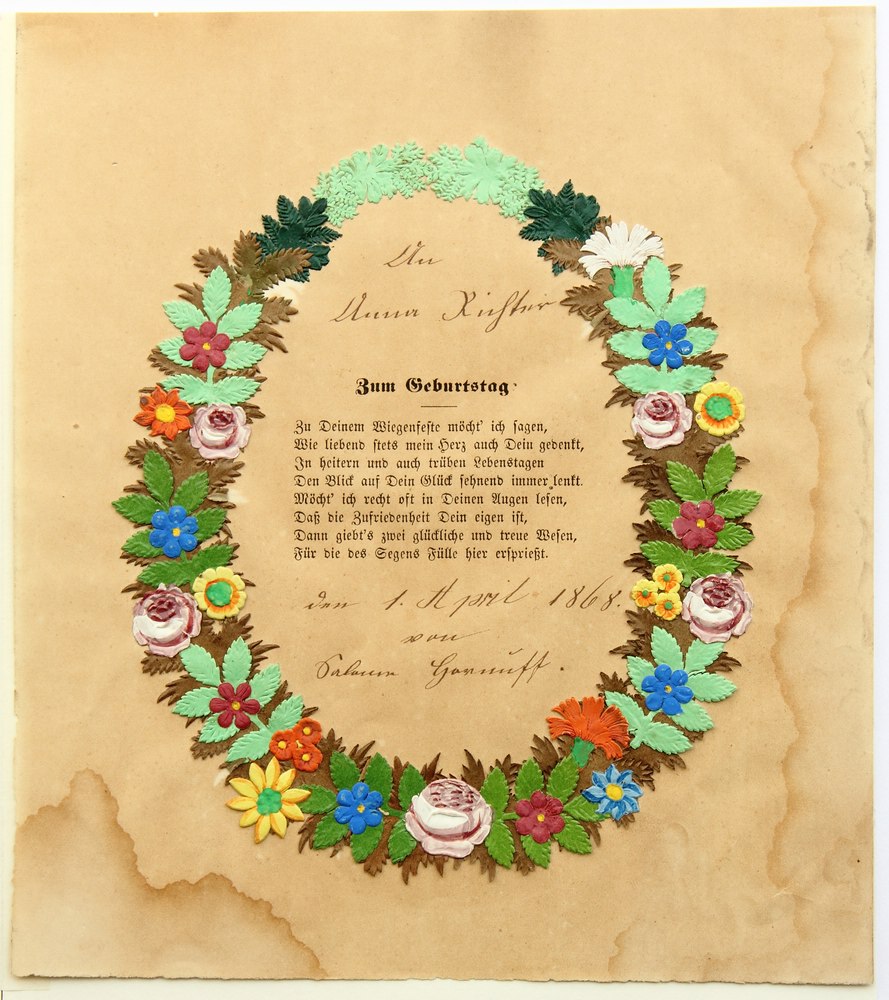 An
Anna Richter
Zum Geburtstag.
Zu Deinem Wiegenfeste möcht' ich sagen,
Wie liebend stets mein Herz auch Dein gedenkt,
In heitern und auch trüben Lebenstagen
Den Blick auf Dein Glück sehnend immer lenkt.
Möcht' ich recht oft in Deinen Augen lesen,
Daß die Zufriedenheit Dein eigen ist,
Dann giebt's zwei glückliche und treue Wesen,
Für die des Segens Fülle hier ersprießt.
den 1. April 1868.
von
Salome Hornuff.